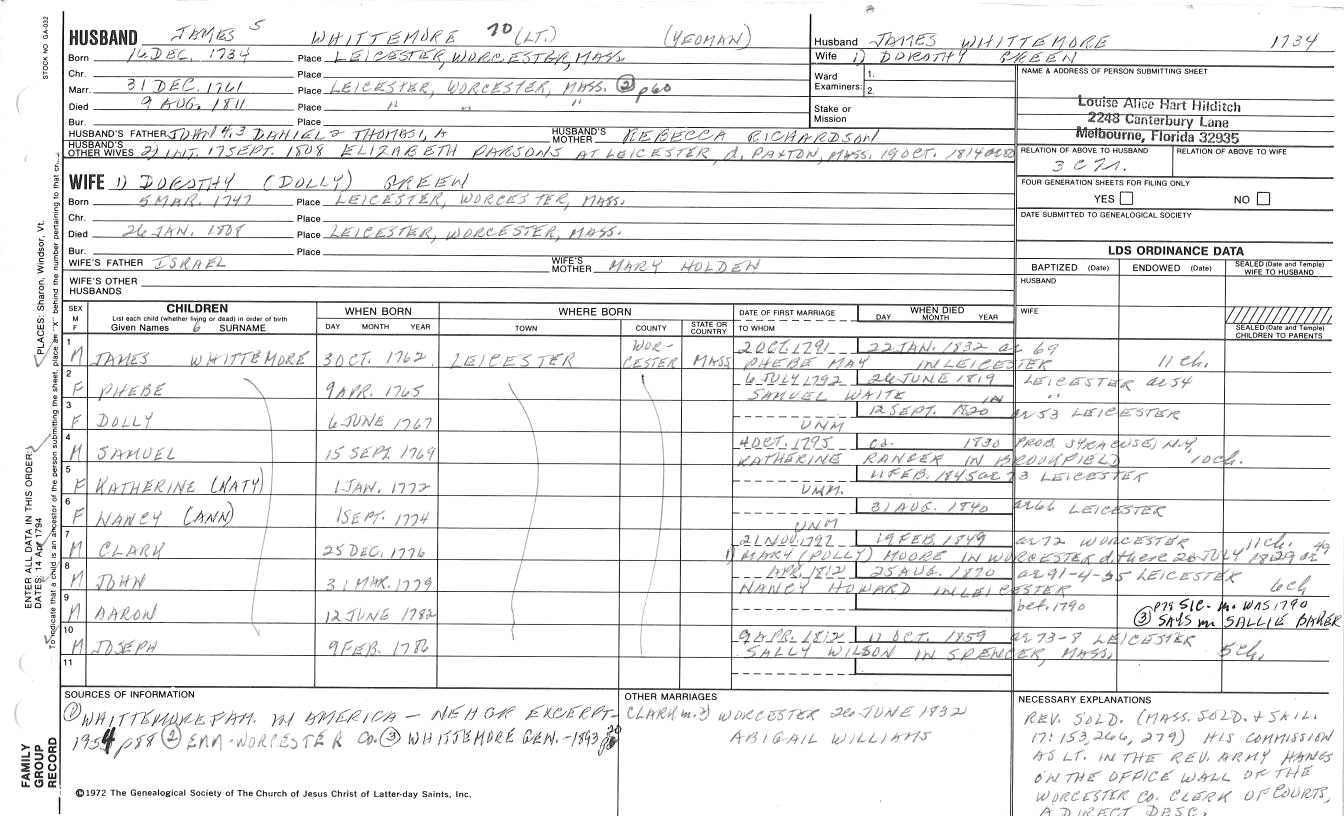 STOCK NO. GA-032
HUSBAND JAMES 5 WHITTEMORE 70 (LT.) (YEOMAN)
Born 16 DEC. 1734 Place LEICESTER, WORCESTER, MASS
Chr. Place
Marr. 31 DEC. 1761 Place LEICESTER, WORCESTER, MASS. ② p60
Died 9 AUG. 1811 Place " " "
Bur. Place
HUSBAND'S FATHER JOHN 4, 3 DANIEL 2 THOMAS 1, A HUSBAND'S MOTHER REBECCA RICHARDSON
HUSBAND'S OTHER WIVES 2) INT. 17 SEPT. 1808 ELIZABETH PARSONS AT LEICESTER, d. PAXTON, MASS. 19 OCT. 1814
WIFE 1) DOROTHY (DOLLY) GREEN
Born 5 MAR. 1747 Place LEICESTER, WORCESTER, MASS.
Chr. Place
Died 26 JAN. 1808 Place LEICESTER, WORCESTER, MASS.
Bur. Place
WIFE'S FATHER ISRAEL WIFE'S MOTHER MARY HOLDEN
WIFE'S OTHER HUSBANDS
Husband JAMES WHITTEMORE 1734
Wife 1) DOROTHY GREEN
Ward Examiners: 1. 2.
Stake or Mission
NAME & ADDRESS OF PERSON SUBMITTING SHEET
Louise Alice Hart Hilditch
2248 Canterbury Lane
Melbourne, Florida 32935
RELATION OF ABOVE TO HUSBAND RELATION OF ABOVE TO WIFE
3 C 7 r.
FOUR GENERATION SHEETS FOR FILING ONLY
YES NO
DATE SUBMITTED TO GENEALOGICAL SOCIETY
LDS ORDINANCE DATA
BAPTIZED (Date) ENDOWED (Date) SEALED (Date and Temple) WIFE TO HUSBAND
HUSBAND
WIFE
SEALED (Date and Temple) CHILDREN TO PARENTS
SEX M F
CHILDREN
List each child (whether living or dead) in order of birth
Given Names 6 SURNAME
WHEN BORN
DAY MONTH YEAR
WHERE BORN
TOWN COUNTY STATE OR COUNTRY
DATE OF FIRST MARRIAGE
TO WHOM
WHEN DIED
DAY MONTH YEAR
1 M JAMES WHITTEMORE 3 OCT. 1762 LEICESTER WOR-CESTER MASS 2 OCT. 1791 22 JAN. 1832 ae 69
PHEBE MAY IN LEICESTER 11 Ch.
2 F PHEBE 9 APR. 1765 6 JULY 1792 26 JUNE 1819 LEICESTER ae 54
SAMUEL WAITE IN "
3 F DOLLY 6 JUNE 1767 12 SEPT. 1820 ae 53 LEICESTER
UNM
4 M SAMUEL 15 SEPT. 1769 4 OCT. 1795 ca. 1830 PROB. SYRACUSE, N.Y.
KATHERINE RANGER IN BROOKFIELD 10 ch.
5 F KATHERINE (KATY) 1 JAN. 1772 11 FEB. 1845 ae 73 LEICESTER
UNM.
6 F NANCY (ANN) 1 SEPT. 1774 31 AUG. 1840 ae 66 LEICESTER
UNM
7 M CLARK 25 DEC. 1776 21 NOV. 1797 19 FEB. 1849 ae 72 WORCESTER 11 ch.
1) MARY (POLLY) MOORE IN WORCESTER d. there 26 JULY 1829 ae 49
8 M JOHN 31 MAR. 1779 APR. 1812 25 AUG. 1870 ae 91-4-25 LEICESTER
NANCY HOWARD IN LEICESTER 6 ch
9 M AARON 12 JUNE 1782 bef. 1790 p78 SIC- m. WAS 1790
③ SAYS m SALLIE BAKER
10 M JOSEPH 9 FEB. 1786 9 APR. 1812 11 OCT. 1859 ae 73-8 LEICESTER
SALLY WILSON IN SPENCER, MASS. 5 ch.
11
SOURCES OF INFORMATION
① WHITTEMORE FAM. IN AMERICA - NEHGR EXCERPT-
1954 p88 ② EMM-WORCESTER CO. ③ WHITTEMORE GEN. -1893
OTHER MARRIAGES
CLARK m. 2) WORCESTER 26 JUNE 1832
ABIGAIL WILLIAMS
NECESSARY EXPLANATIONS
REV. SOLD. (MASS. SOLD. & SAIL.
17: 153, 266, 279) HIS COMMISSION
AS LT. IN THE REV. ARMY HANGS
ON THE OFFICE WALL OF THE
WORCESTER CO. CLERK OF COURTS,
A DIRECT DESC.
©1972 The Genealogical Society of The Church of Jesus Christ of Latter-day Saints, Inc.
FAMILY GROUP RECORD
ENTER ALL DATA IN THIS ORDER:
DATES: 14 Apr 1794 PLACES: Sharon, Windsor, Vt.
To indicate that a child is an ancestor of the person submitting the sheet, place an "X" behind the number pertaining to that ch